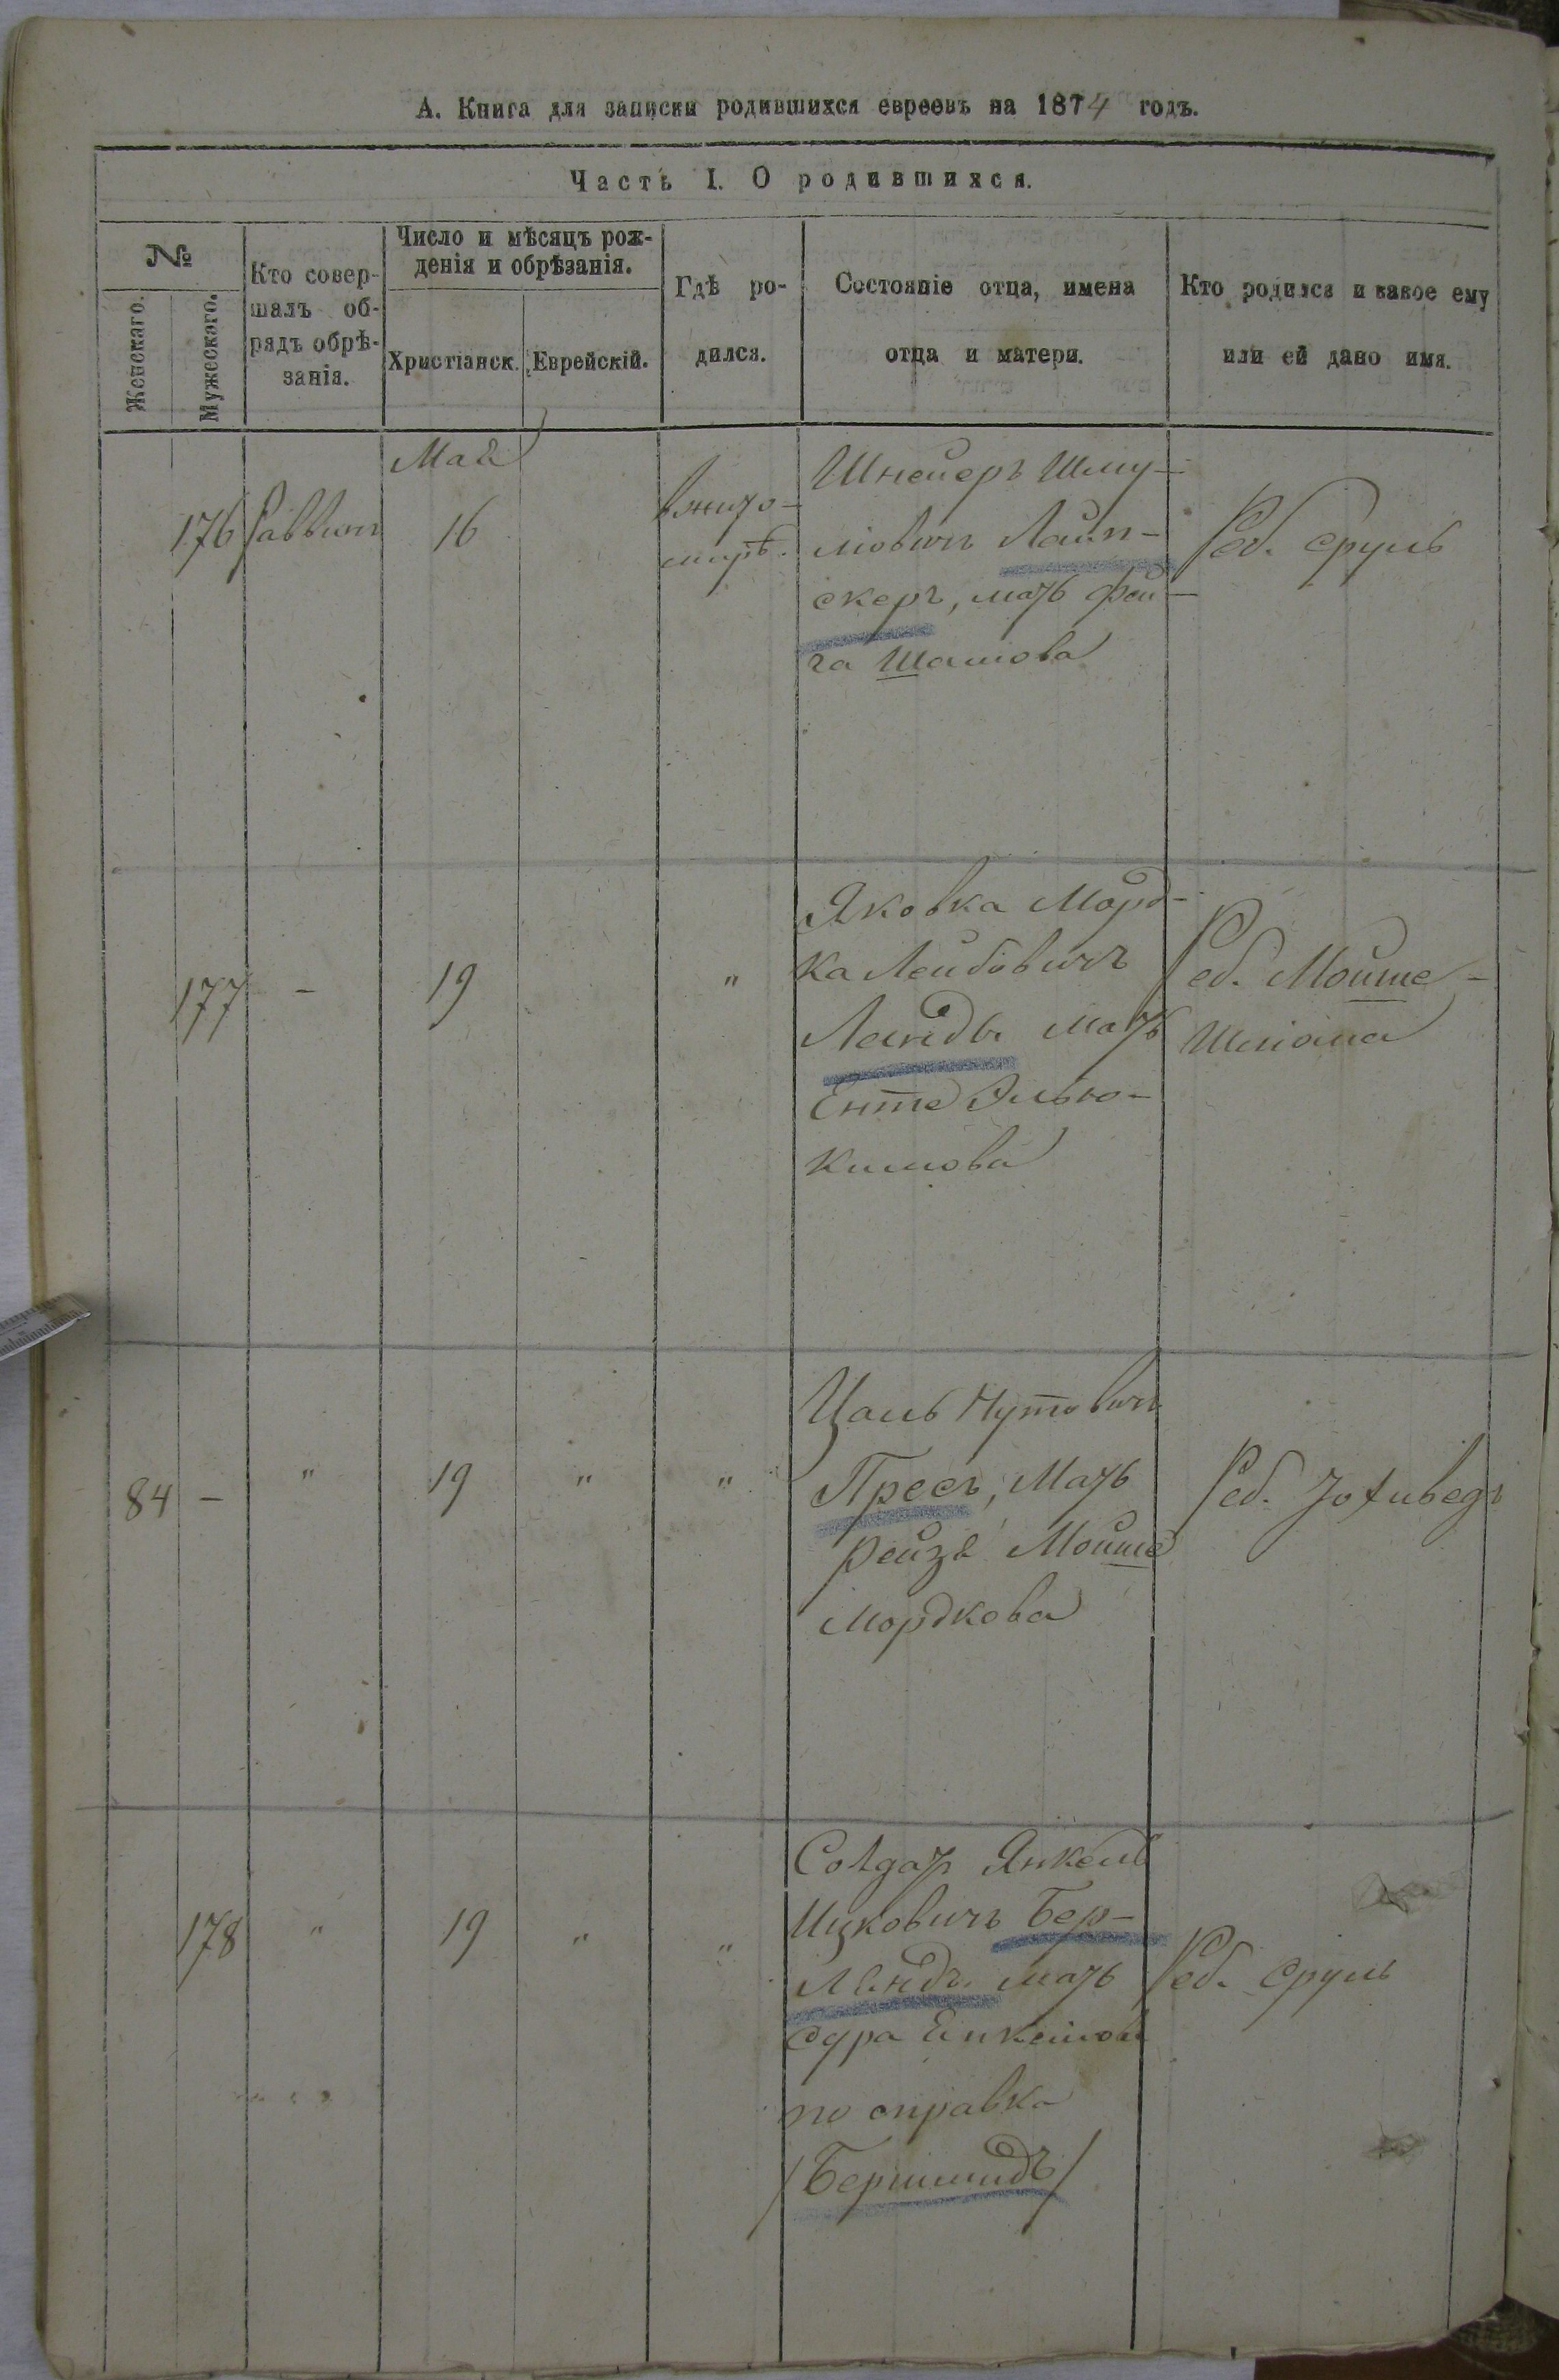 А. Книга для записки родившихся евреевъ на 1874 годъ.
Часть I. О родившихся.
№
Женскаго.
Мужескаго.
Кто совер-
шалъ об-
рядъ обрѣ-
занія.
Число и мѣсяцъ рож-
денія и обрѣзанія.
Христіанск.
Еврейскій.
Гдѣ ро-
дился.
Состояніе отца, имена
отца и матери.
Кто родился и какое ему
или ей дано имя.
Май
176
Раввинъ
16
в жито-
мирѣ.
Шнеиеръ Шму-
лiовичъ Лайп-
скеръ, мать Феи-
га Шаiова
Реб. Сруль
177
-
19
"
Яковка Морд-
ка Лейбовичъ
Ландъ. мать
Ента Элью-
кимова
Реб. Мойше-
Шлiома
84
-
"
19
"
"
Цаль Нутовичъ
Пресъ, Мать
Рейзя Мойше
Мордкова
Реб. Iохиведъ
178
"
19
"
"
Солдат Янкель
Ицковичъ Бер-
ландъ. мать
Сура
по справка
/Бершпидъ/
Реб. Сруль